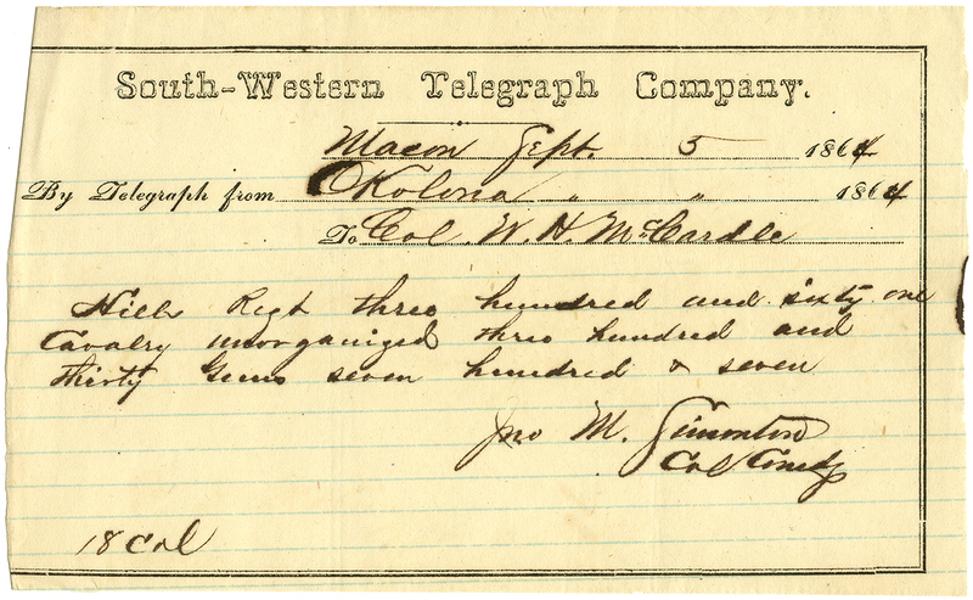 South-Western Telegraph Company.
Macon Sept. 5 1864
By Telegraph from Okolona " " 1864
To Col. W. H. McCardle
Hills Regt three hundred and sixty one
Cavalry unorganized three hundred and
thirty Guns seven hundred & seven
Jno M. Simonton
Col Comdg
18 Col